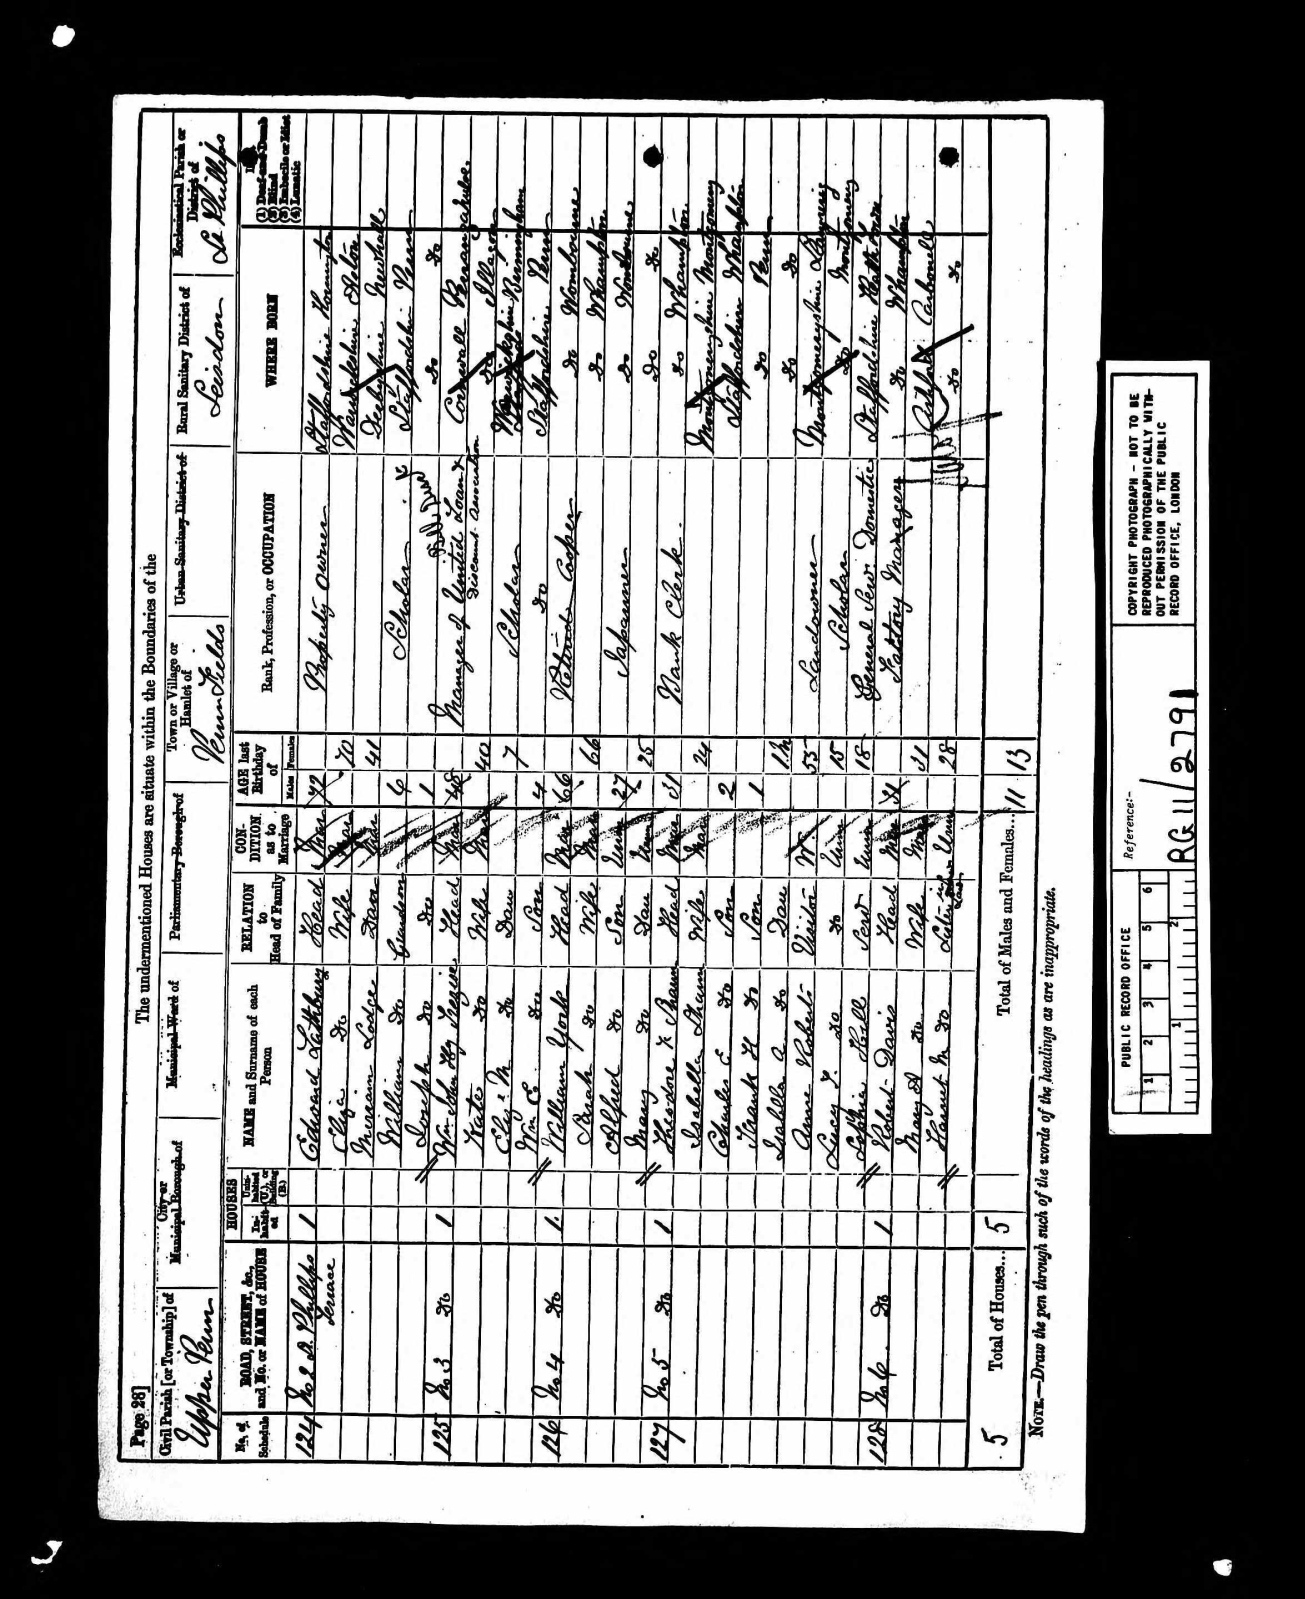 Page 28]
The undermentioned Houses are situate within the Boundaries of the
Civil Parish [or Township] of
Upper Penn
City or Municipal Borough of
Municipal Ward of
Parliamentary Borough of
Town or Village or Hamlet of
Penn Fields
Urban Sanitary District of
Rural Sanitary District of
Seisdon
Ecclesiastical Parish or District of
St Phillips
No. of Schedule
ROAD, STREET, &c., and No. or NAME of HOUSE
HOUSES
In-habit-ed
Unin-habited (U.), or Building (B.)
NAME and Surname of each Person
RELATION to Head of Family
CON-DITION as to Marriage
AGE last Birthday of
Males
Females
Rank, Profession, or OCCUPATION
WHERE BORN
(1) Deaf-and-Dumb
(2) Blind
(3) Imbecile or Idiot
(4) Lunatic
124 No 2 St Phillips Terrace 1 Edward Lathbury Head Mar 72 Property Owner Staffordshire
Eliza Do Wife Mar 70 Warwickshire Aston
Miriam Lodge Daur Mar 41 Derbyshire Newhall
William Do Grandson 6 Scholar Staffordshire Penn
Joseph Do Do 1 Do Do
125 No 3 Do 1 Wm John Hy Head Mar 48 Manager of United Loan & Discount Association Cornwall
Kate Do Wife Mar 40 Do Illogan
Eliz M Do Daur 7 Scholar Warwickshire Birmingham
Wm E. Do Son 4 Do Staffordshire Penn
126 No 4 Do 1 William York Head Mar 66 Retired Cooper Do Wombourne
Sarah Do Wife Mar 66 Do Whampton
Alfred Do Son Unm 27 Japanner Do Wombourne
Mary Do Dau Unm 25 Do Do
127 No 5 Do 1 Theodore F. Head Mar 31 Bank Clerk. Do Whampton
Isabella Wife Mar 24 Montgomeryshire Montgomery
Charles E Do Son 2 Staffordshire Whampton
Frank H Do Son 1 Do Penn
Isabella A Do Dau Do Do
Anne Roberts Visitor W 55 Landowner Montgomeryshire
Lucy J. Do Do Unm 15 Scholar Do Montgomery
Sophia Hill Serv Unm 18 General Serv Domestic Staffordshire
128 No 6. Do 1 Robert Davis Head Mar 34 Factory Manager Do Whampton
Mary A Do Wife Mar 31
Harriet M Do Sister in Law Unm 28 Do Do
5 Total of Houses... 5 Total of Males and Females... 11 13
NOTE.—Draw the pen through such of the words of the headings as are inappropriate.
PUBLIC RECORD OFFICE
1 2 3 4 5 6
1 2
Reference:-
RG 11/2791
COPYRIGHT PHOTOGRAPH - NOT TO BE
REPRODUCED PHOTOGRAPHICALLY WITH-
OUT PERMISSION OF THE PUBLIC
RECORD OFFICE, LONDON